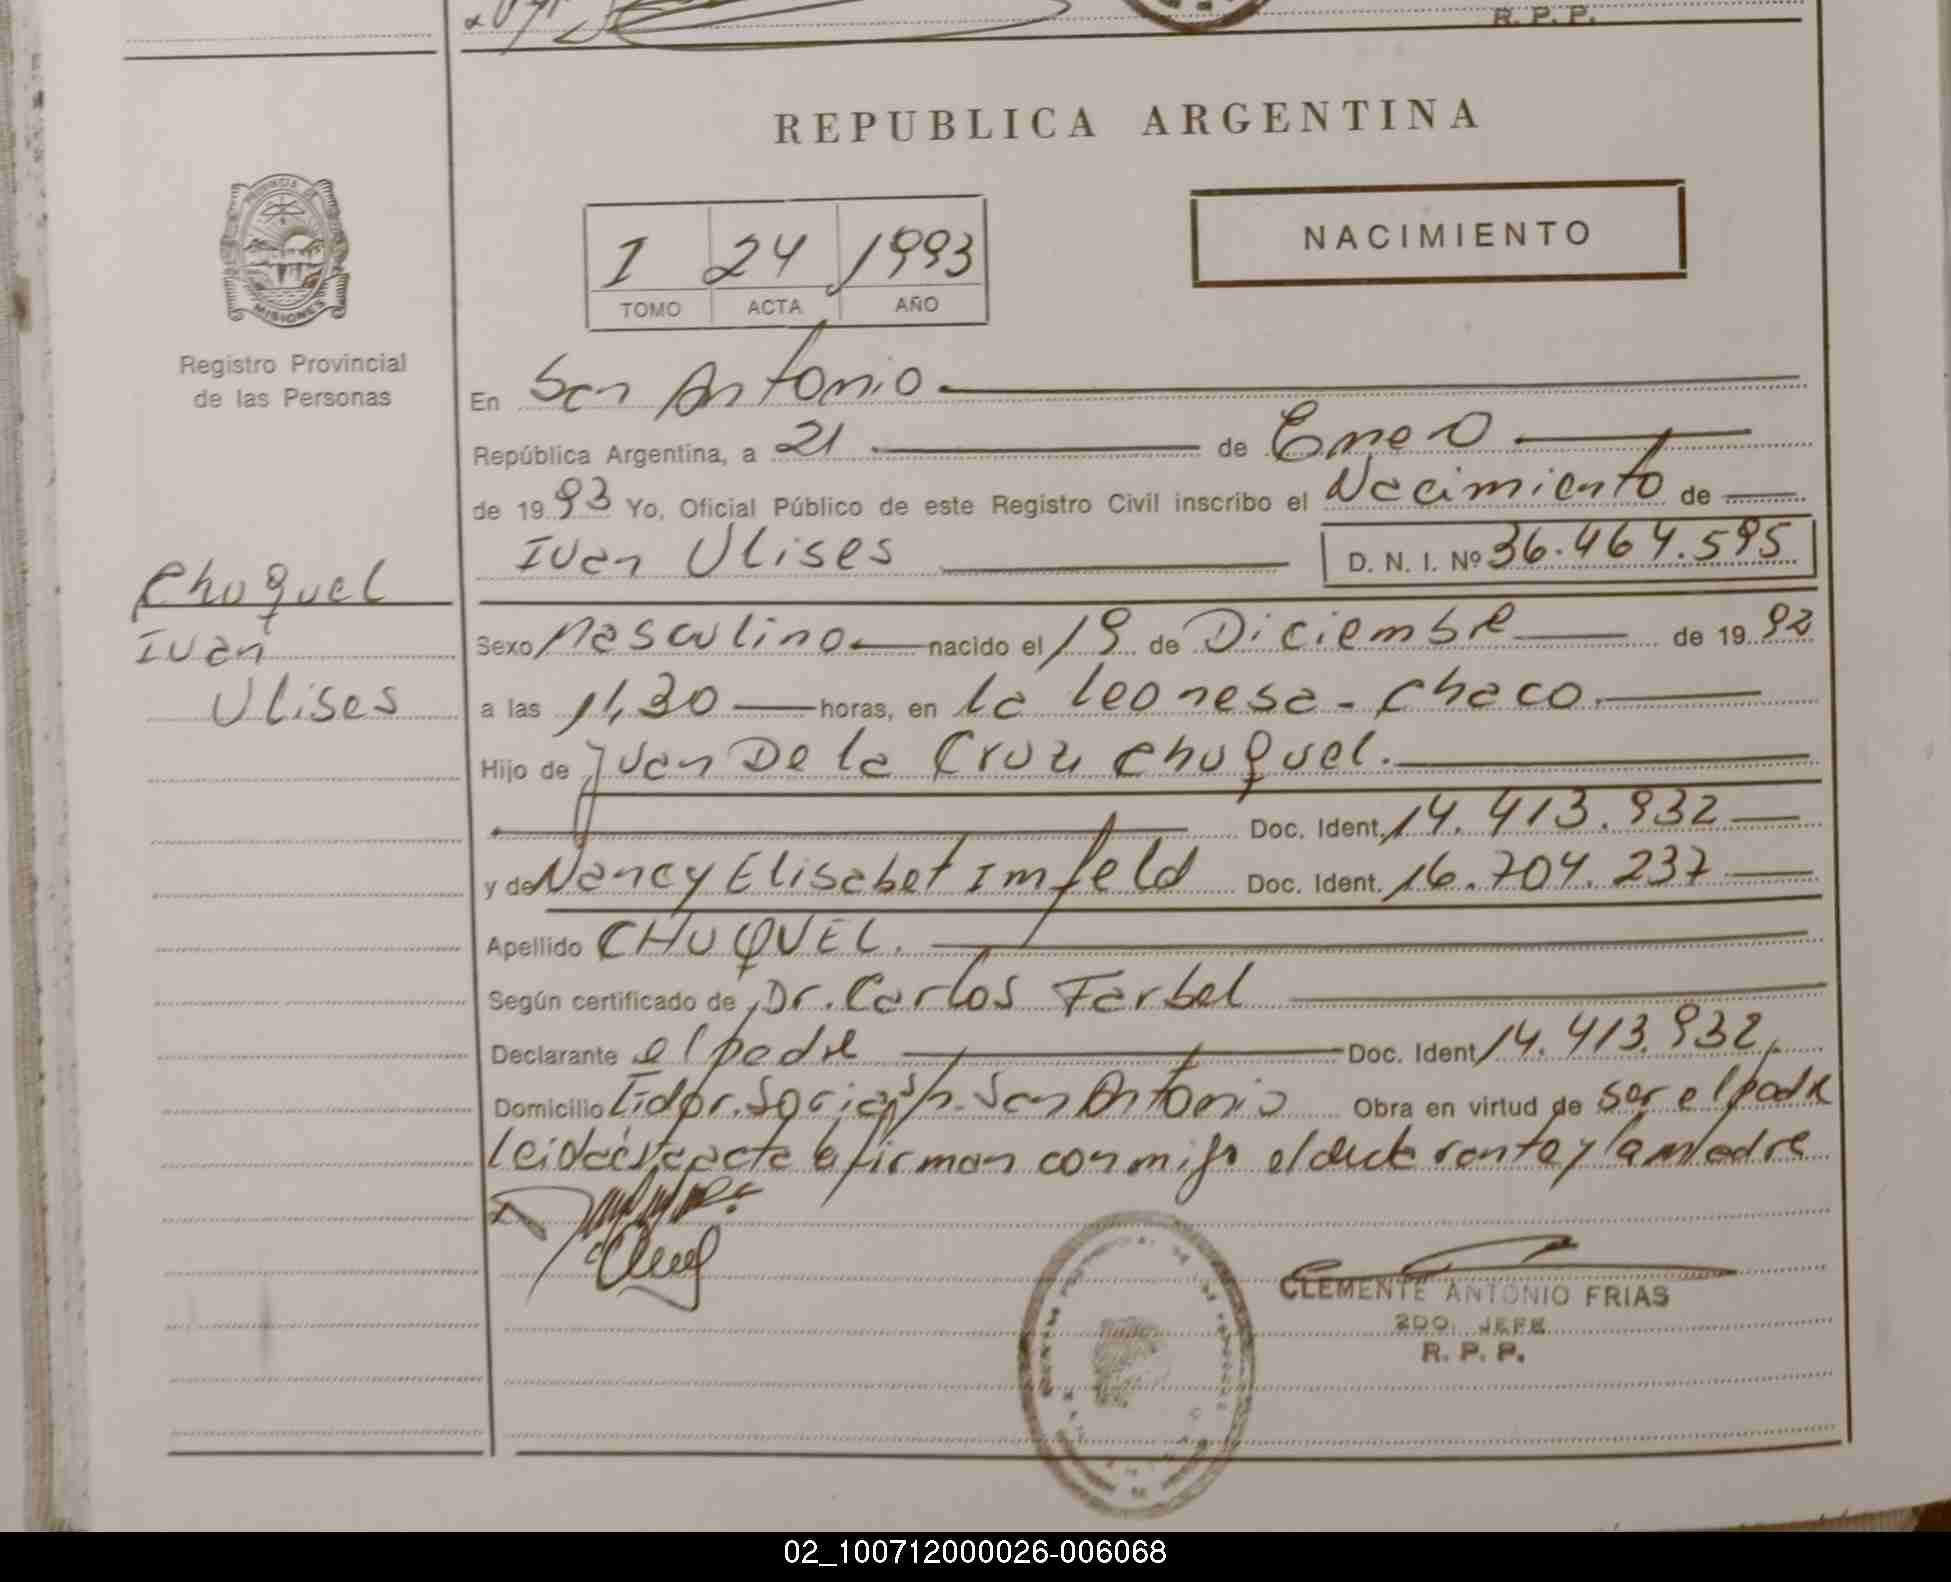 R. P. P.
REPUBLICA ARGENTINA
PROVINCIA DE
MISIONES
Registro Provincial
de las Personas
I 24 1993
TOMO ACTA AÑO
NACIMIENTO
En San Antonio
República Argentina, a 21 de Enero
de 1993 Yo, Oficial Público de este Registro Civil inscribo el Nacimiento de
Ivan Ulises D. N. I. Nº 36.464.595
Chuquel
Ivan
Ulises
Sexo Masculino nacido el 19 de Diciembre de 1992
a las 11,30 horas, en La Leonesa - Chaco
Hijo de Juan De la Cruz Chuquel.
Doc. Ident. 14.413.932
y de Nancy Elisabet Imfeld Doc. Ident. 16.704.237
Apellido CHUQUEL.
Según certificado de Dr. Carlos Farbel
Declarante el padre Doc. Ident. 14.413.932
Domicilio San Antonio Obra en virtud de ser el padre
leida esta acta firman conmigo el declarante y la madre
CLEMENTE ANTONIO FRIAS
2DO. JEFE
R. P. P.
02_100712000026-006068